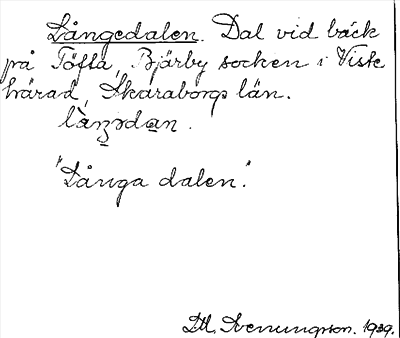 Långedalen. Dal vid bäck
på Töfta, Bjärby socken i Viste
härad, Skaraborgs län.
"Långa dalen."
D.H. Svenungsson. 1939.